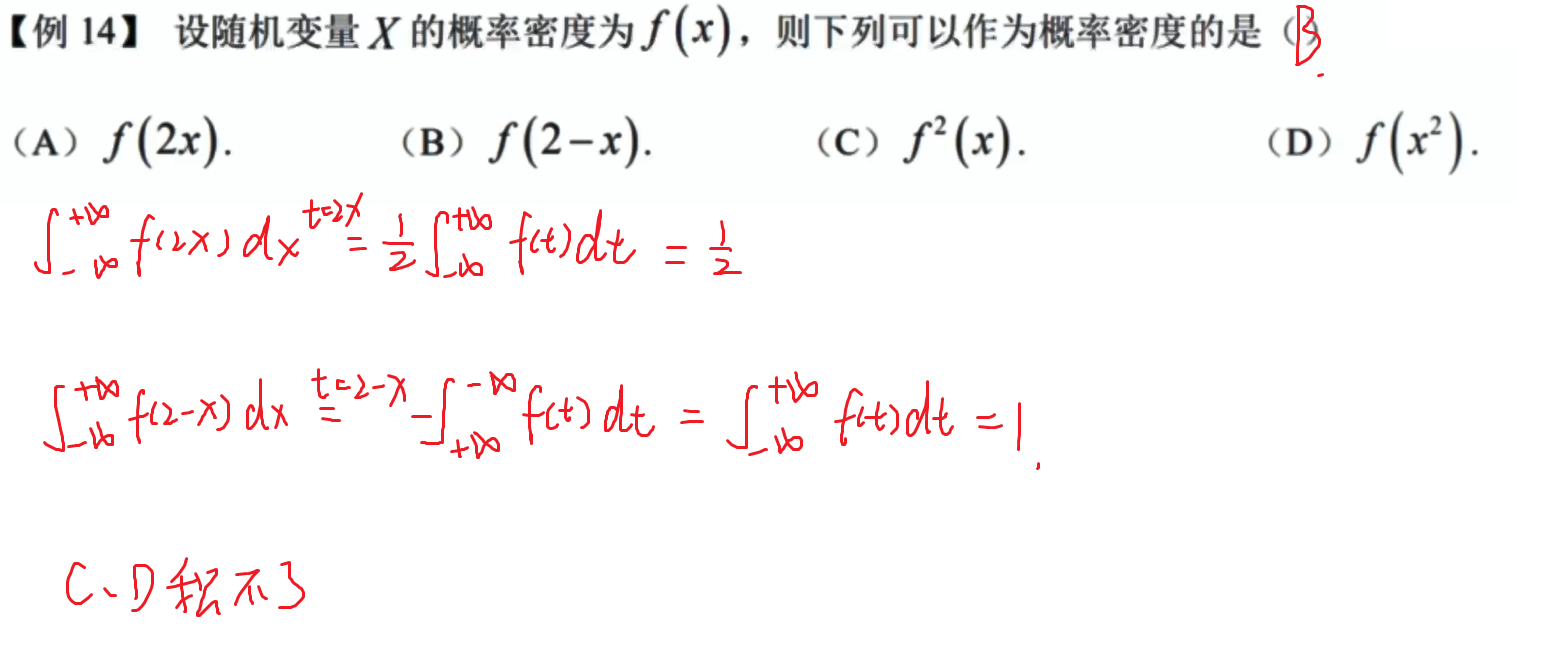 【例 14】 设随机变量 X 的概率密度为 f(x)，则下列可以作为概率密度的是（B）.
（A）f(2x). （B）f(2−x). （C）f²(x). （D）f(x²).
∫_{-∞}^{+∞} f(2x) dx \overset{t=2x}{=} 1/2 ∫_{-∞}^{+∞} f(t)dt = 1/2
∫_{-∞}^{+∞} f(2-x) dx \overset{t=2-x}{=} -∫_{+∞}^{-∞} f(t) dt = ∫_{-∞}^{+∞} f(t)dt = 1.
C、D积不了